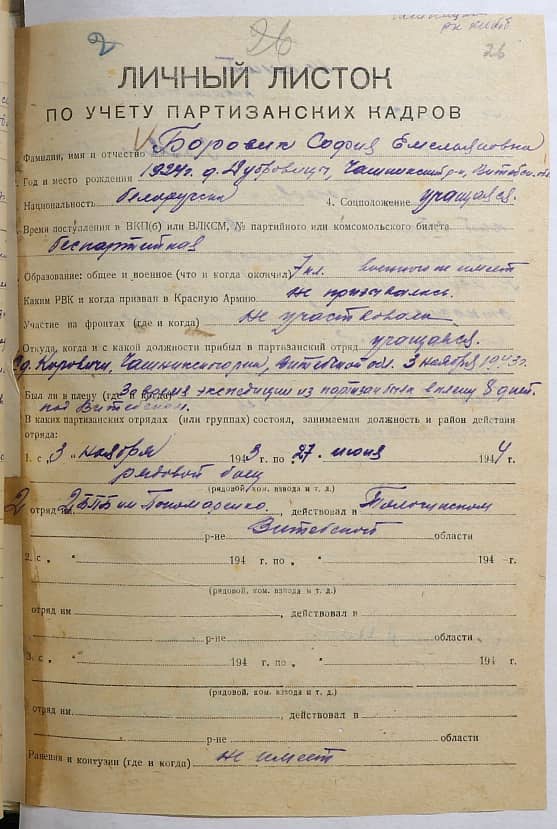 2
26
26
ЛИЧНЫЙ ЛИСТОК
ПО УЧЕТУ ПАРТИЗАНСКИХ КАДРОВ
Фамилия, имя и отчество Боровик София Емельяновна
Год и место рождения 1924г. д. Дубровицы, Чашникский р-н, Витебск. обл
Национальность белорусска 4. Соцположение учащаяся.
Время поступления в ВКП(б) или ВЛКСМ, № партийного или комсомольского билета
беспартийная
Образование: общее и военное (что и когда окончил) 7 кл. военного не имеет
Каким РВК и когда призван в Красную Армию не призывалась.
Участие на фронтах (где и когда) не участвовала
Откуда, когда и с какой должности прибыл в партизанский отряд учащаяся.
д. Коровичи, Чашникского р-на, Витебской обл. 3 ноября 1943г.
Был ли в плену (где и когда) Во время экспедиции из партизан была в плену 8 дней.
под Витебском.
В каких партизанских отрядах (или группах) состоял, занимаемая должность и район действия
отряда:
1. с „ 3 " ноября 1943 г. по „ 27 " июня 1944 г.
рядовой боец
(рядовой, ком. взвода и т. д.)
2 отряд им. 2 БПБ им Пономаренко, действовал в Толочинском
р-не Витебской области
2. с „ " 194 г. по „ " 194 г.
(рядовой, ком. взвода и т. д.)
отряд им , действовал в
р-не области
3. с „ " 194 г. по „ " 194 г.
(рядовой, ком. взвода и т. д.)
отряд им. , действовал в
р-не области
Ранения и контузии (где и когда) не имеет